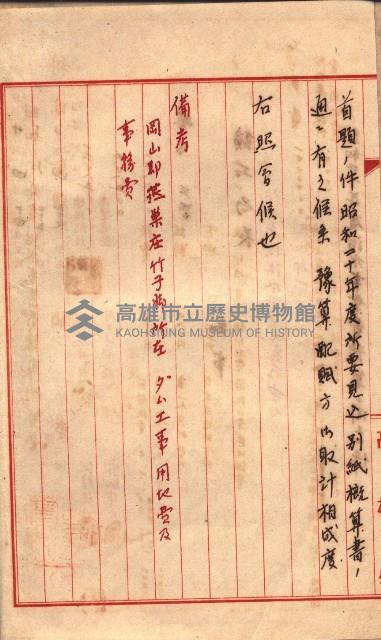 首題ノ件昭和二十年度所要見込別紙概算書ノ
通ニ有之候条豫算配賦方御取計相成度
右照會候也
備考
岡山郡燕巣庄竹子脚所在ダム工事用地費及
事務費
高雄市立歷史博物館
KAOHSIUNG MUSEUM OF HISTORY